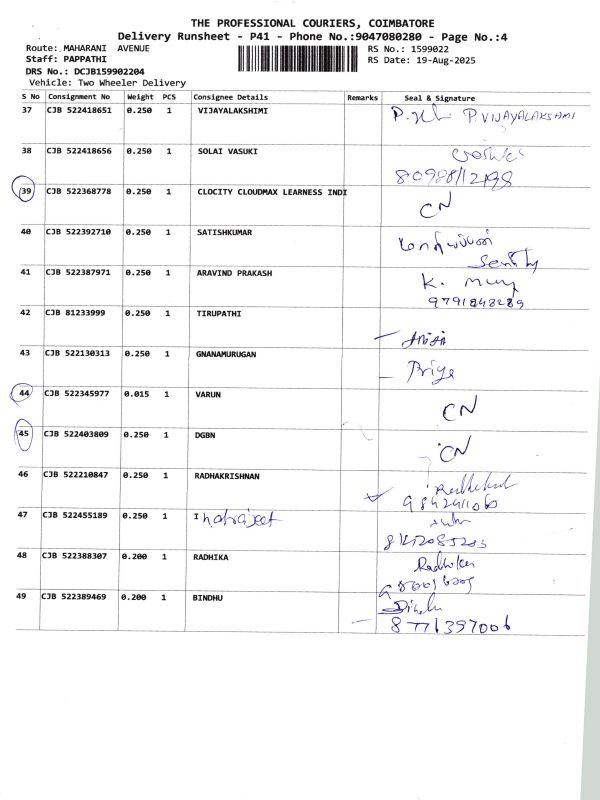 THE PROFESSIONAL COURIERS, COIMBATORE
Delivery Runsheet - P41 - Phone No.:9047080280 - Page No.:4
Route: MAHARANI AVENUE RS No.: 1599022
Staff: PAPPATHI RS Date: 19-Aug-2025
DRS No.: DCJB159902204
Vehicle: Two Wheeler Delivery
S No Consignment No Weight PCS Consignee Details Remarks Seal & Signature
37 CJB 522418651 0.250 1 VIJAYALAKSHIMI P VIJAYALAKSHMI
38 CJB 522418656 0.250 1 SOLAI VASUKI
39 CJB 522368778 0.250 1 CLOCITY CLOUDMAX LEARNESS INDI CN
40 CJB 522392710 0.250 1 SATISHKUMAR
41 CJB 522387971 0.250 1 ARAVIND PRAKASH K.
9791848289
42 CJB 81233999 0.250 1 TIRUPATHI
43 CJB 522130313 0.250 1 GNANAMURUGAN Priya
44 CJB 522345977 0.015 1 VARUN CN
45 CJB 522403809 0.250 1 DGBN CN
46 CJB 522210847 0.250 1 RADHAKRISHNAN
47 CJB 522455189 0.250 1 I
48 CJB 522388307 0.200 1 RADHIKA
49 CJB 522389469 0.200 1 BINDHU
8771397006